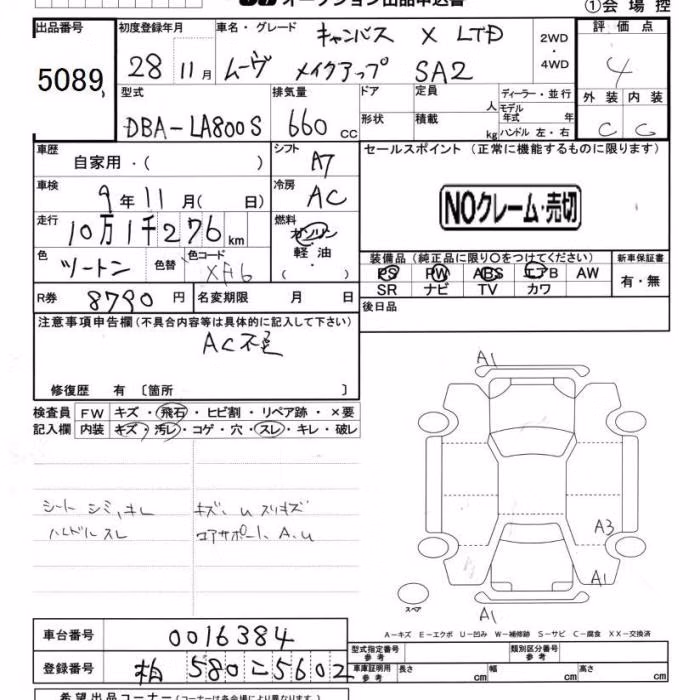 オークション出品申込書
①会場控
出品番号 5089
初度登録年月 28 11月
車名・グレード キャンバス X LTD
ムーヴ メイクアップ SA2
2WD・4WD
評価点 4
外装 内装
C C
型式 DBA-LA800S
排気量 660 cc
ドア 形状
定員 人
積載 kg
ディーラー・並行
モデル年式 年
ハンドル 左・右
車歴 自家用・( )
シフト A7
車検 9年11月( 日)
冷房 AC
走行 10万1千276 km
燃料 ガソリン 軽油 ( )
色 ツートン 色替 色コード XA6
R券 8790円 名変期限 月 日
セールスポイント (正常に機能するものに限ります)
NOクレーム・売切
装備品(純正品に限り○をつけてください)
PS PW ABS エアB AW
SR ナビ TV カワ
新車保証書
有・無
後日品
注意事項申告欄(不具合内容等は具体的に記入して下さい)
AC不良
修復歴 有〔箇所 〕
検査員記入欄
FW キズ・飛石・ヒビ割・リペア跡・×要
内装 キズ・汚レ・コゲ・穴・スレ・キレ・破レ
シート シミ、キレ
ハンドル スレ
キズ、U スリキズ
コアサポート A、U
A1
A3
A1
A1
スペア
A−キズ E−エクボ U−凹み W−補修跡 S−サビ C−腐食 XX−交換済
車台番号 0016384
登録番号 柏 580 こ 5602
型式指定番号 参考
類別区分番号 参考
車庫証明用 参考 長さ cm 幅 cm 高さ cm
希望出品コーナー(コーナーは各会場により異なります)